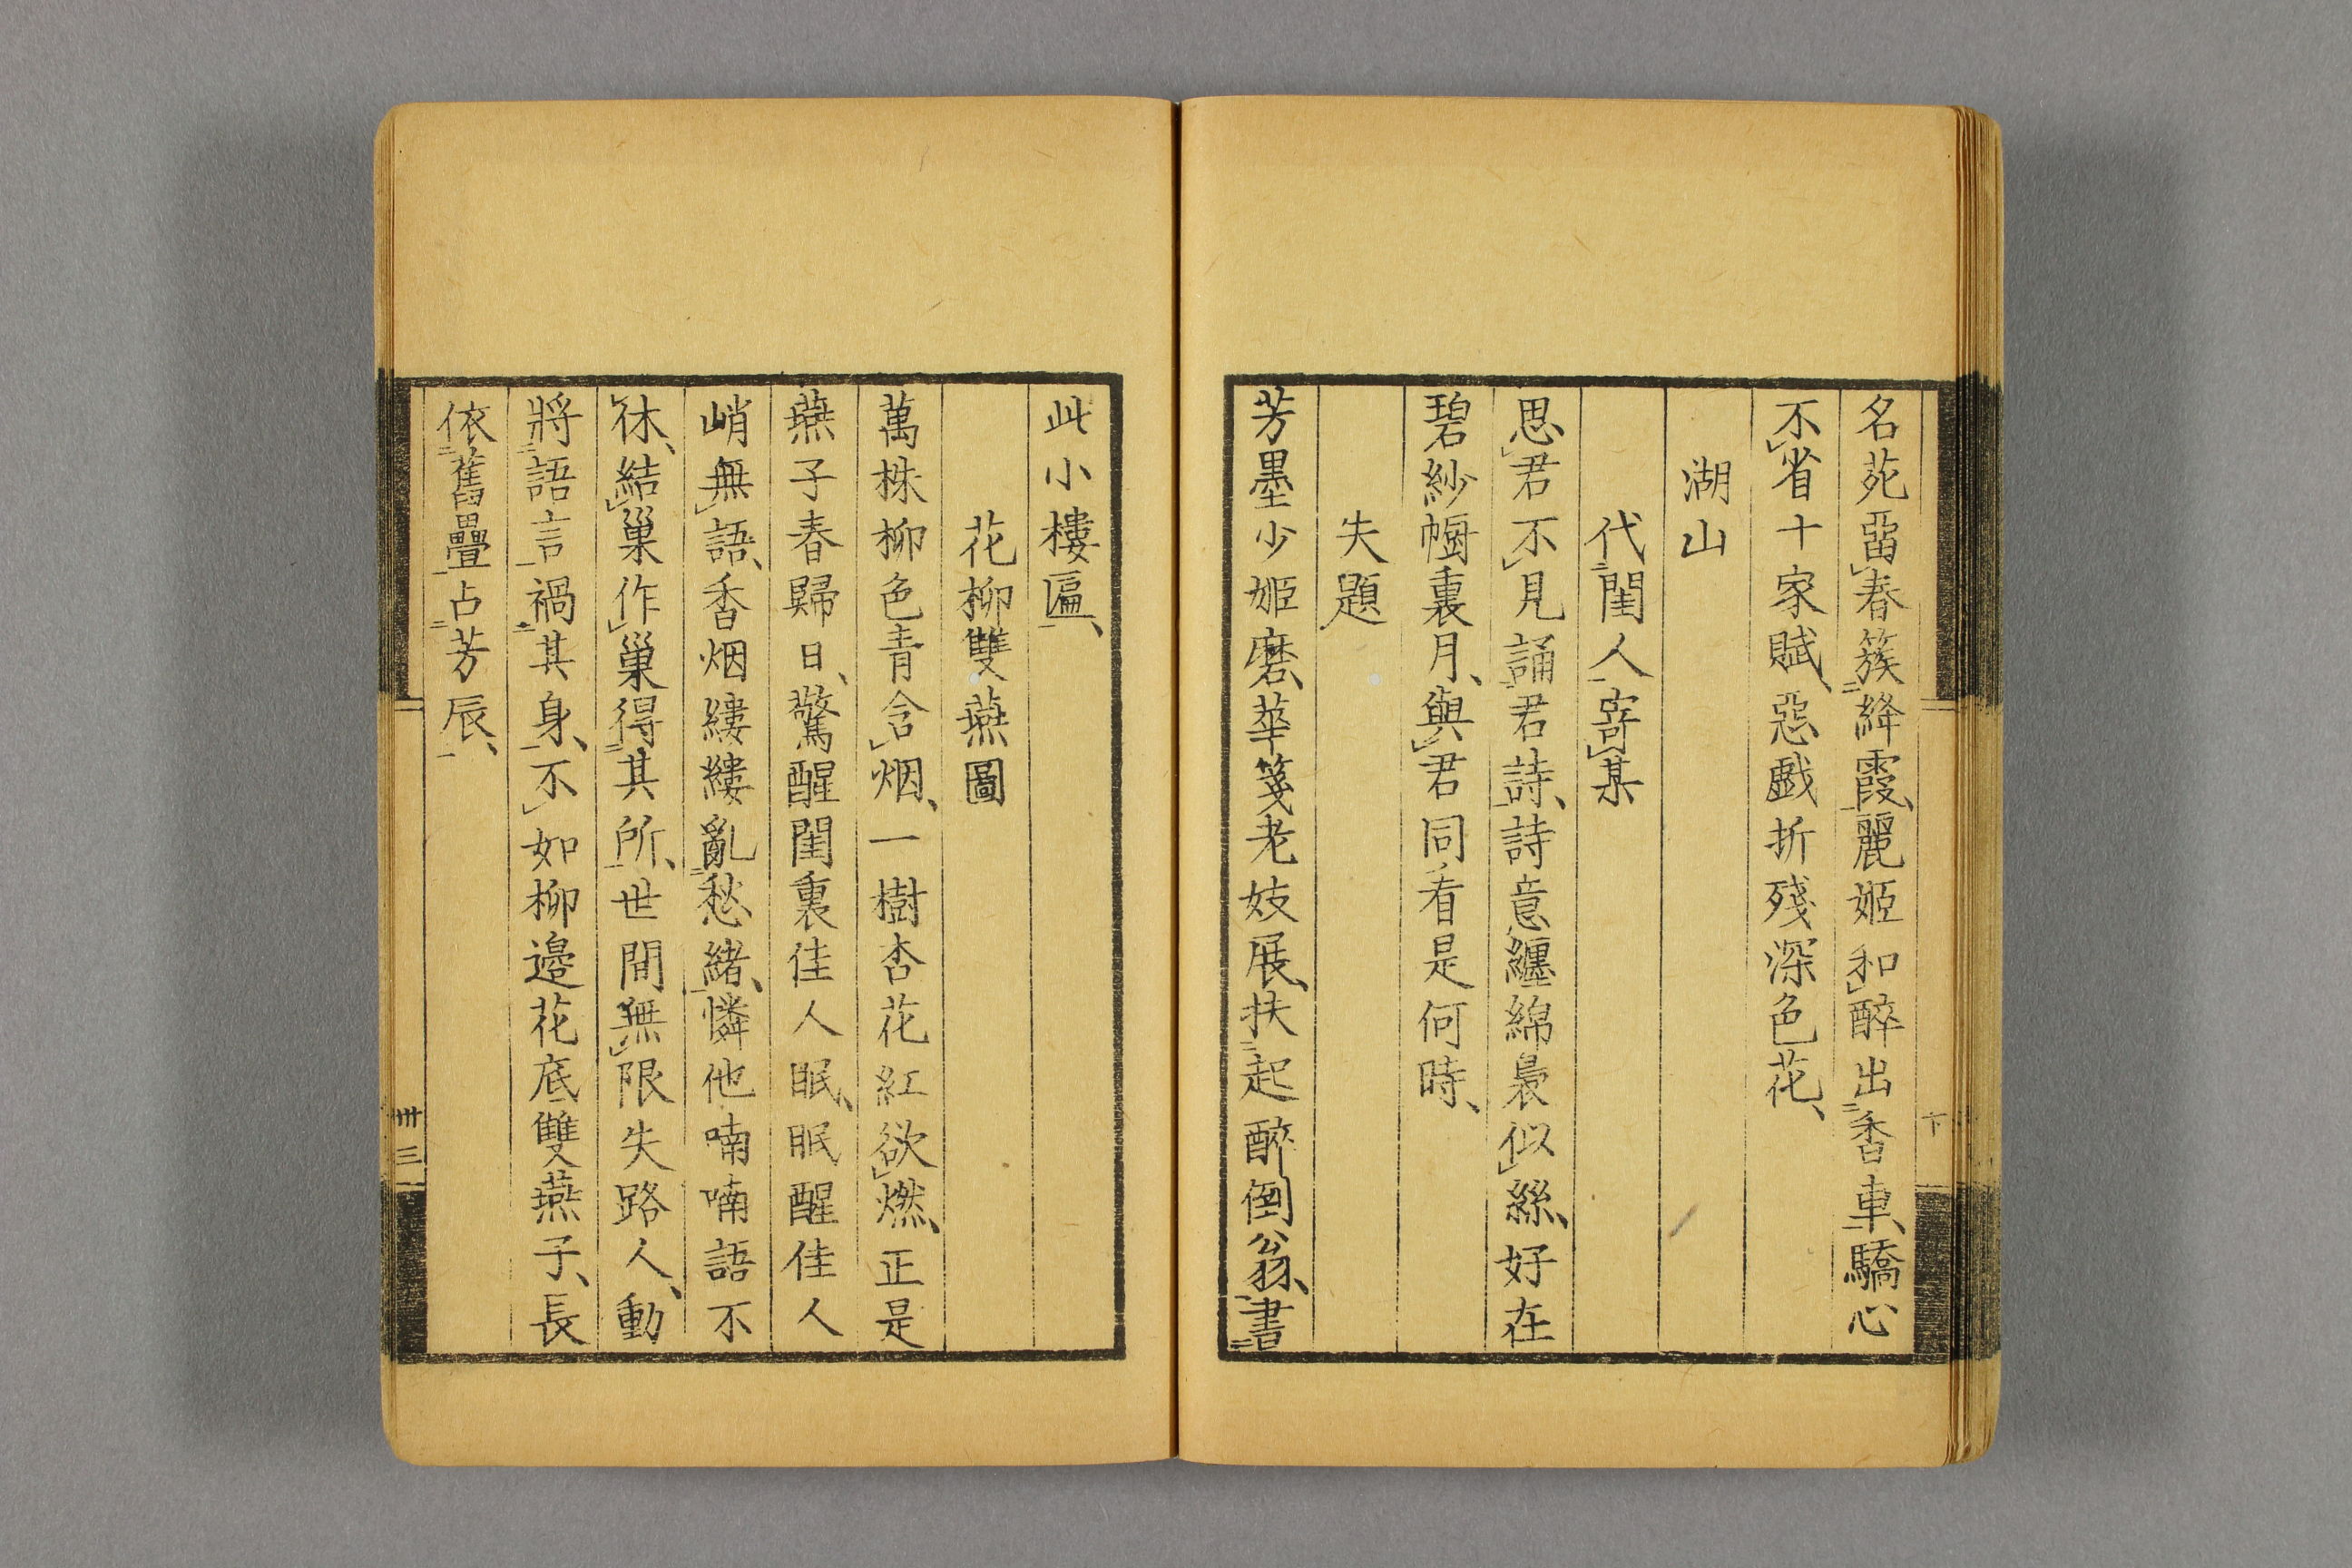 名苑畱春簇絳霞、麗姬和醉出香車、驕心
不省十家賦、惡戲折殘深色花、
湖山
代閨人寄某
思君不見誦君詩、詩意纏綿裊似絲、好在
碧紗幮裏月、與君同看是何時、
失題
芳墨少姬磨、華箋老妓展、扶起醉倒翁、書
下
此小樓匾、
花柳雙燕圖
萬株柳色青含烟、一樹杏花紅欲燃、正是
燕子春歸日、驚醒閨裏佳人眠、眠醒佳人
峭無語、香烟縷縷亂愁緒、憐他喃喃語不
休、結巢作巢得其所、世間無限失路人、動
將語言禍其身、不如柳邊花底雙燕子、長
依舊壘占芳辰、
卅三